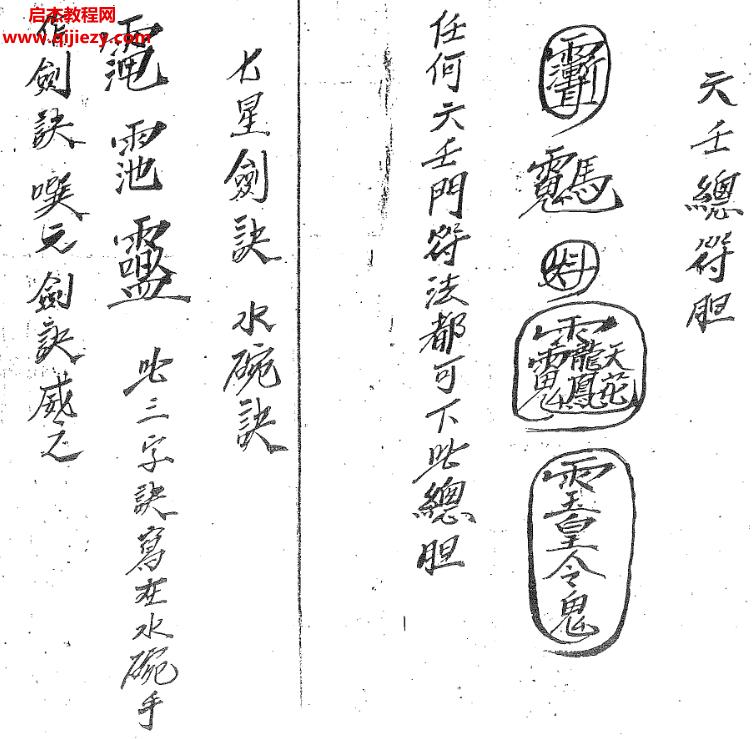 启杰教程网
www.qijiezy.com
六壬總符胆
雨玉皇令鬼
任何六壬門符法都可下此總胆
七星劍訣 水碗訣
此三字訣寫在水碗手
作劍訣 劍訣